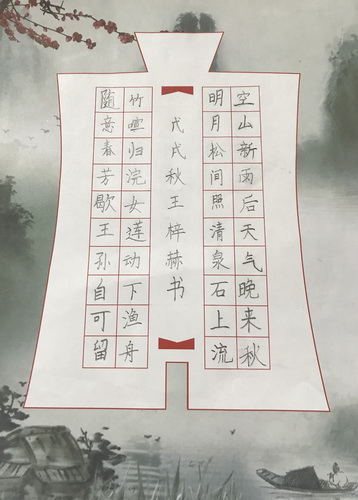 空山新雨后天气晚来秋
明月松间照清泉石上流
戊戌秋王梓赫书
竹喧归浣女莲动下渔舟
随意春芳歇王孙自可留